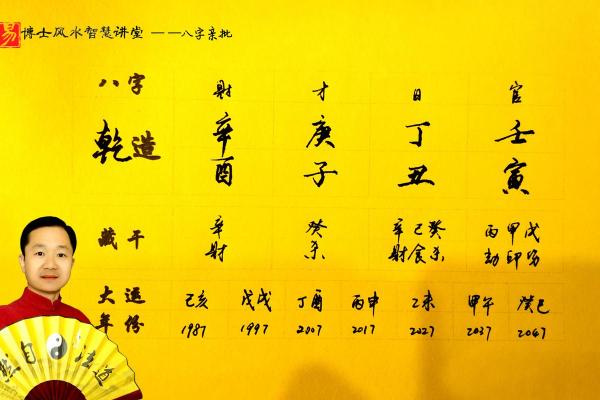 易 博士风水智慧讲堂 ——八字亲批
八字 财 才 日 官
乾造 辛 庚 丁 壬
酉 子 丑 寅
藏干 辛 癸 辛己癸 丙甲戊
财 杀 财食杀 劫印伤
大運 己亥 戊戌 丁酉 丙申 乙未 甲午 癸巳
年份 1987 1997 2007 2017 2027 2037 2047
然自法道